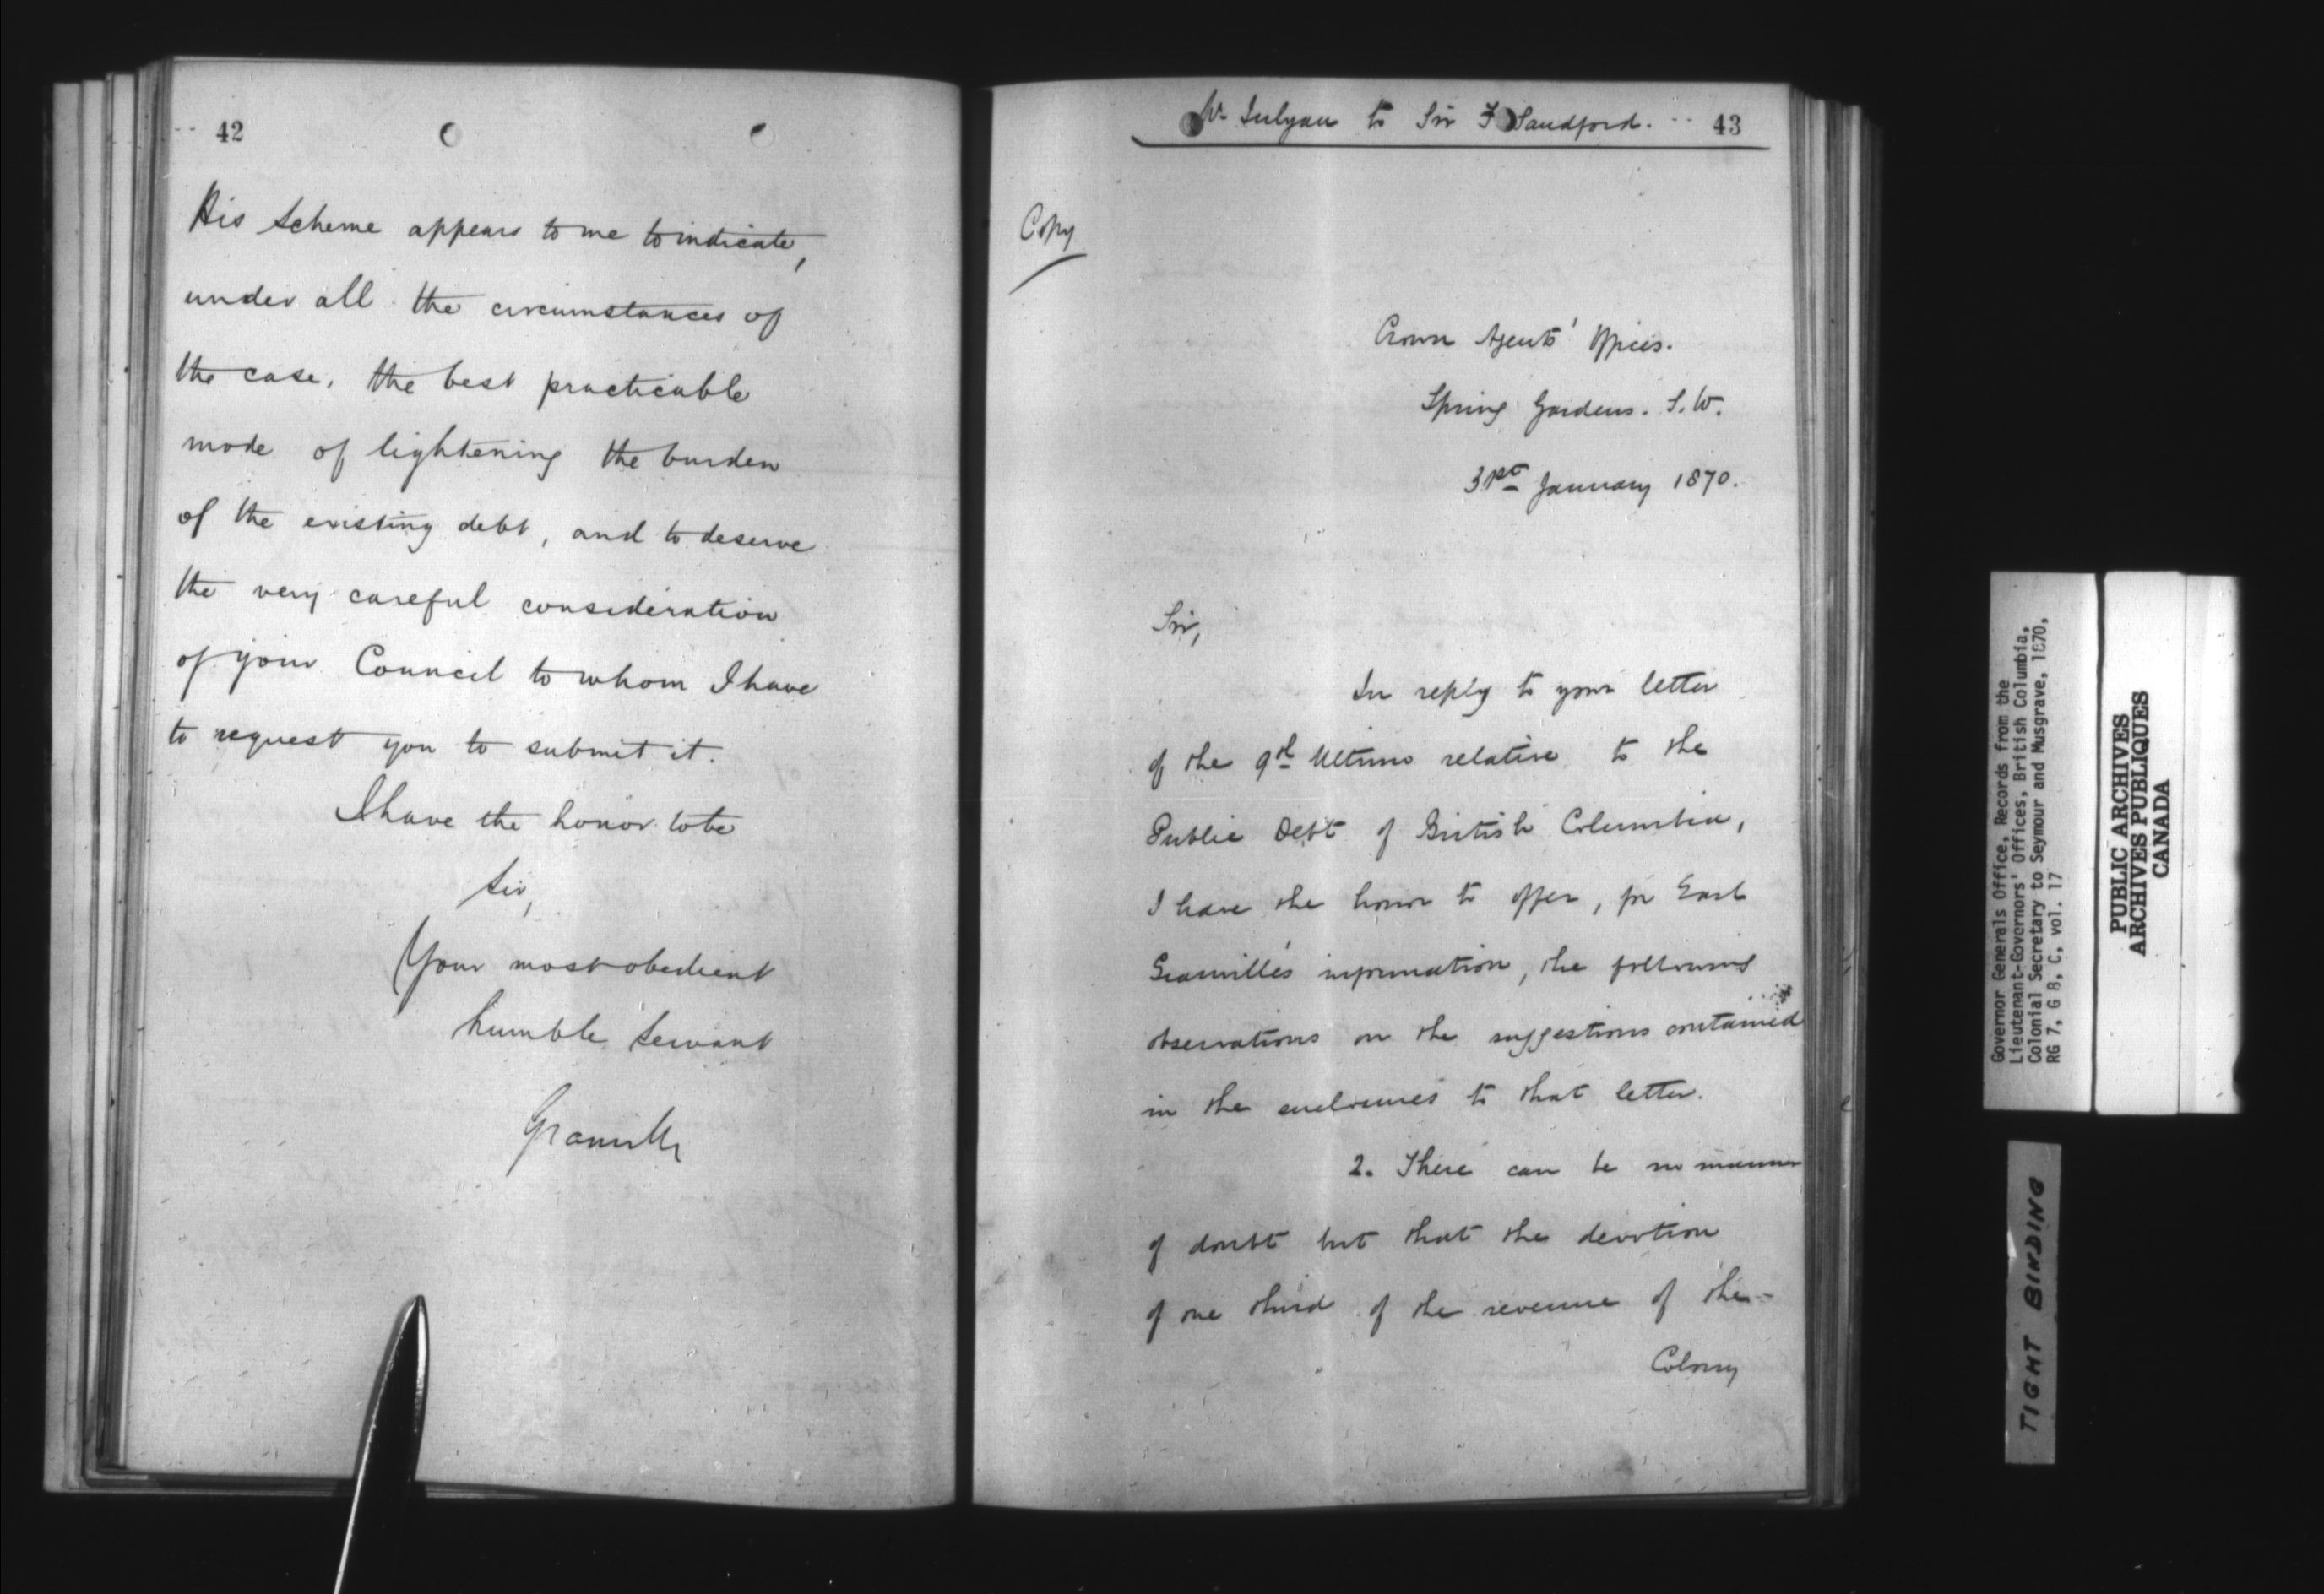 42
His Scheme appears to me to indicate,
under all the circumstances of
the case, the best practicable
mode of lightening the burden
of the existing debt, and to deserve
the very careful consideration
of your Council to whom I have
to request you to submit it.
I have the honor to be
Sir,
Your most obedient
humble Servant
Granville
Mr Julyan to Sir F Sandford. 43
Copy
Crown Agents' Offices.
Spring Gardens. S.W.
31st January 1870.
Sir,
In reply to your letter
of the 9th Ultimo relative to the
Public Debt of British Columbia,
I have the honor to offer, for Earl
Granville's information, the following
observations on the suggestions contained
in the enclosures to that letter.
2. There can be no manner
of doubt but that the devotion
of one third of the revenue of the
Colony
Governor Generals Office, Records from the
Lieutenant-Governors' Offices, British Columbia,
Colonial Secretary to Seymour and Musgrave, 1870,
RG 7, G 8, C, vol. 17
PUBLIC ARCHIVES
ARCHIVES PUBLIQUES
CANADA
TIGHT BINDING